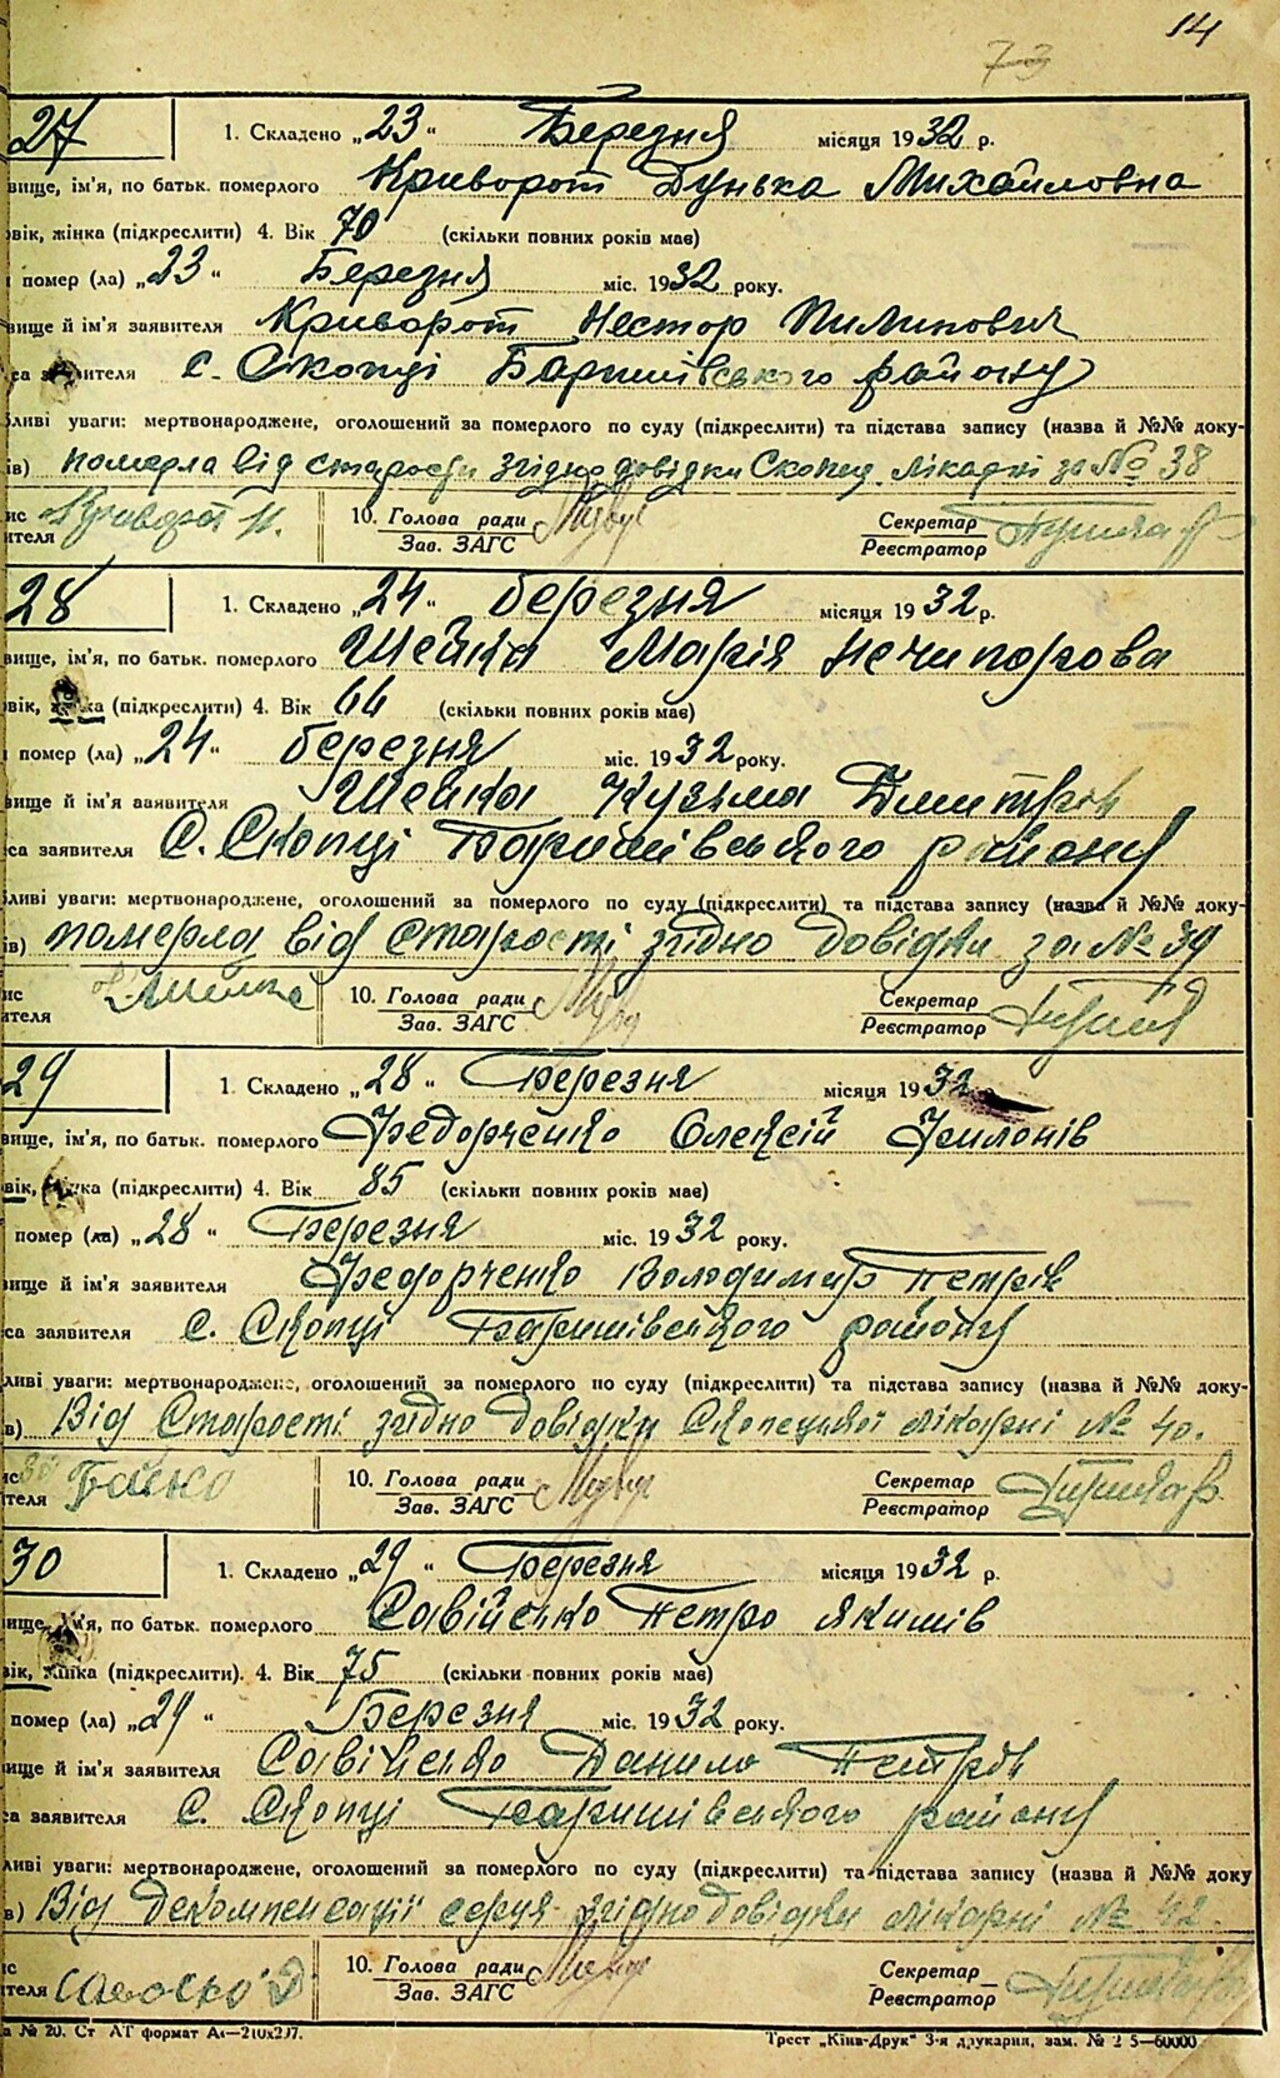 14
73
27 1. Складено „23“ Березня місяця 1932 р.
вище, ім'я, по батьк. померлого Криворот Дунька Михайловна
вік, жінка (підкреслити) 4. Вік 70 (скільки повних років має)
помер (ла) „23“ Березня міс. 1932 року.
вище й ім'я заявителя Криворот Нестор Пилипович
са заявителя с. Скопці Баришівського району
ливі уваги: мертвонароджене, оголошений за померлого по суду (підкреслити) та підстава запису (назва й №№ доку-
ів) померла від старости згідно довідки Скопец. лікарні за № 38
ис Криворот Н. 10. Голова ради Секретар
ителя Зав. ЗАГС Реєстратор
28 1. Складено „24“ березня місяця 1932 р.
вище, ім'я, по батьк. померлого Шейка Марія Нечипорова
вік, жінка (підкреслити) 4. Вік 66 (скільки повних років має)
помер (ла) „24“ березня міс. 1932 року.
вище й ім'я заявителя Шейка Кузьма Дмитрів
са заявителя С. Скопці Баришівського району
ливі уваги: мертвонароджене, оголошений за померлого по суду (підкреслити) та підстава запису (назва й №№ доку-
ів) померла від старості згідно довідки за № 39
ис 10. Голова ради Секретар
ителя Зав. ЗАГС Реєстратор
29 1. Складено „28“ Березня місяця 1932
вище, ім'я, по батьк. померлого Федорченко Олексій
вік, жінка (підкреслити) 4. Вік 85 (скільки повних років має)
помер (ла) „28“ Березня міс. 1932 року.
вище й ім'я заявителя Федорченко Володимир Петрів
са заявителя с. Скопці Баришівського району
ливі уваги: мертвонароджене, оголошений за померлого по суду (підкреслити) та підстава запису (назва й №№ доку-
в) Від Старості згідно довідки Скопецької лікарні № 40.
ис Бойко 10. Голова ради Секретар
ителя Зав. ЗАГС Реєстратор
30 1. Складено „29“ Березня місяця 1932 р.
вище, ім'я, по батьк. померлого Савійсько Петро Якимів
вік, жінка (підкреслити). 4. Вік 75 (скільки повних років має)
помер (ла) „29“ Березня міс. 1932 року.
вище й ім'я заявителя Данило Петрів
са заявителя С. Скопці Баришівського району
ливі уваги: мертвонароджене, оголошений за померлого по суду (підкреслити) та підстава запису (назва й №№ доку
в) Від Декомпенсації серця згідно довідки лікарні № 42.
ис 10. Голова ради Секретар
ителя Зав. ЗАГС Реєстратор
а № 20. Ст АТ формат А4—210х297. Трест „Київ-Друк“ 3-я друкарня, зам. № 2 5—60000